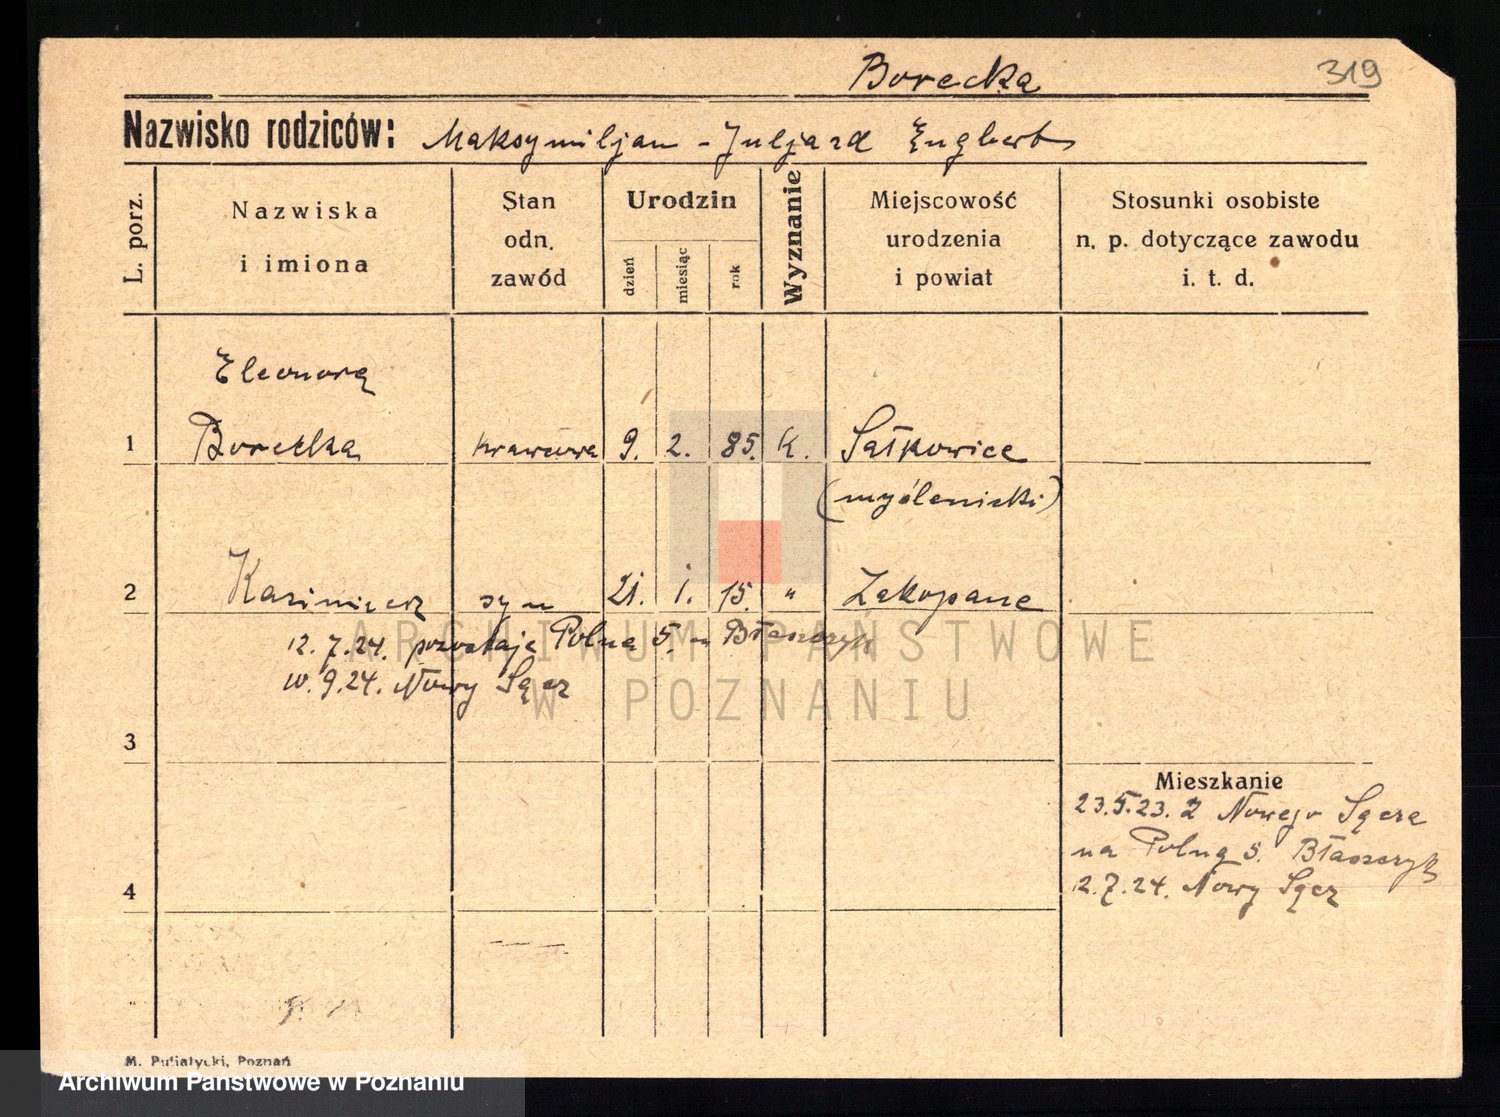 Borecka
319
Nazwisko rodziców: Maksymiljan - Juljard Engbert
L. porz.
Nazwiska i imiona
Stan odn. zawód
Urodzin
dzień
miesiąc
rok
Wyznanie
Miejscowość urodzenia i powiat
Stosunki osobiste n. p. dotyczące zawodu i. t. d.
Eleonora
1 Borecka krawcowa 9. 2. 85. k. Sałkowice
(myślenicki)
2 Kazimierz syn 21. 1. 15. " Zakopane
12.7.24. pozostaje Polna 5. Błaszczyk
10.9.24. Nowy Sącz
3
Mieszkanie
23.5.23. z Nowego Sącza
na Polną 5. Błaszczyk
12.7.24. Nowy Sącz
4
ARCHIWUM PAŃSTWOWE
W POZNANIU
M. Putiatycki, Poznań
Archiwum Państwowe w Poznaniu